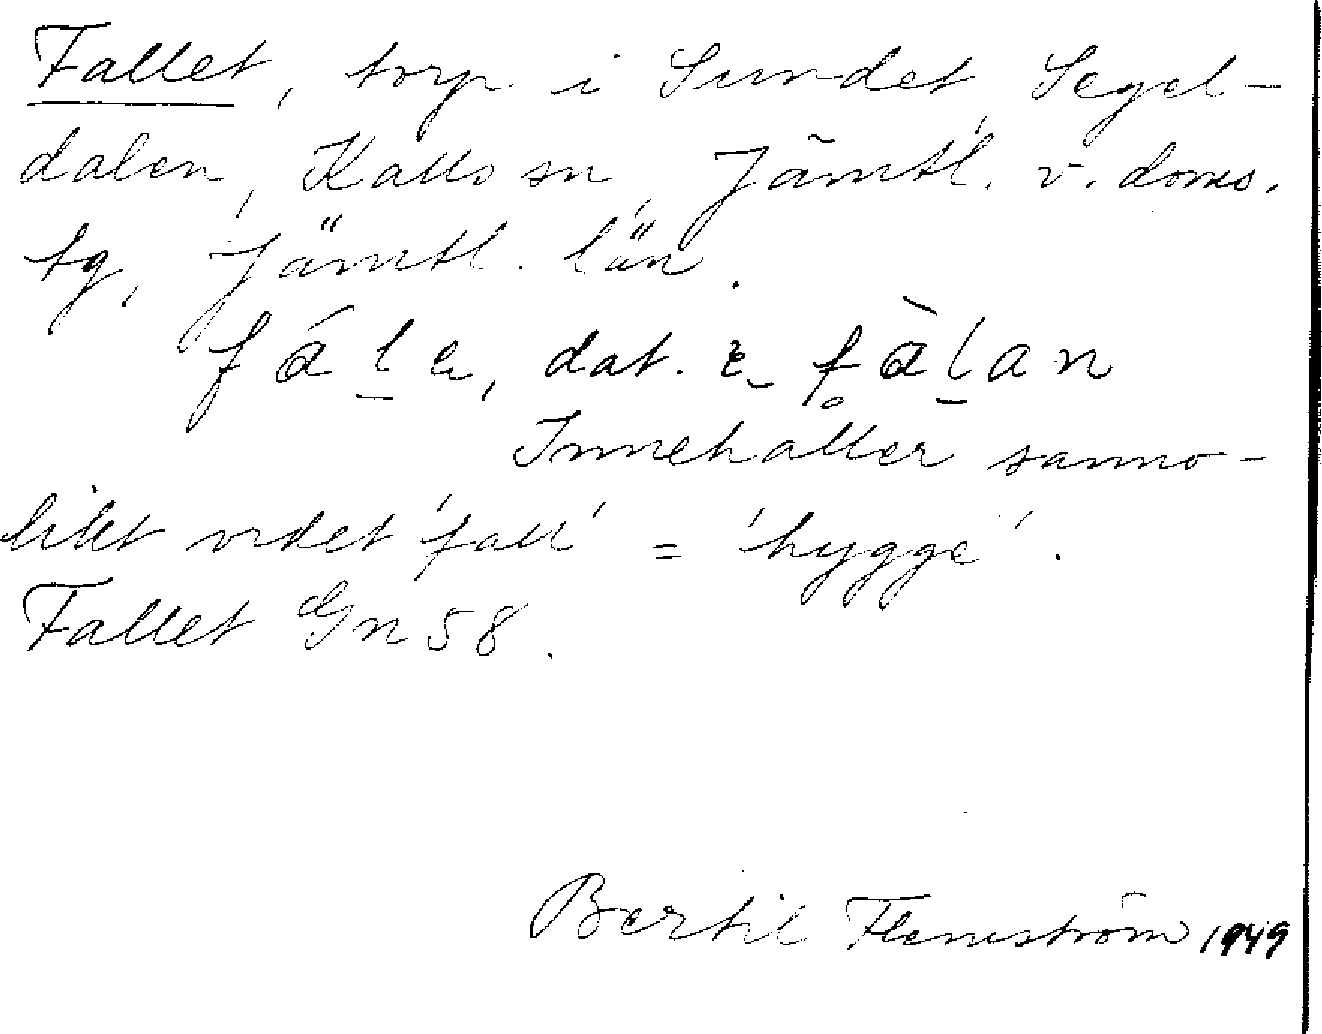 Fallet, torp i Sundet, Segel-
dalen, Kalls sn, Jämtl. v. doms.
tg, Jämtl. län.
fál̲a, dat. i fàl̲an
Innehåller sanno-
likt ordet 'fall' = 'hygge'.
Fallet Gn 58.
Bertil Flemström 1949